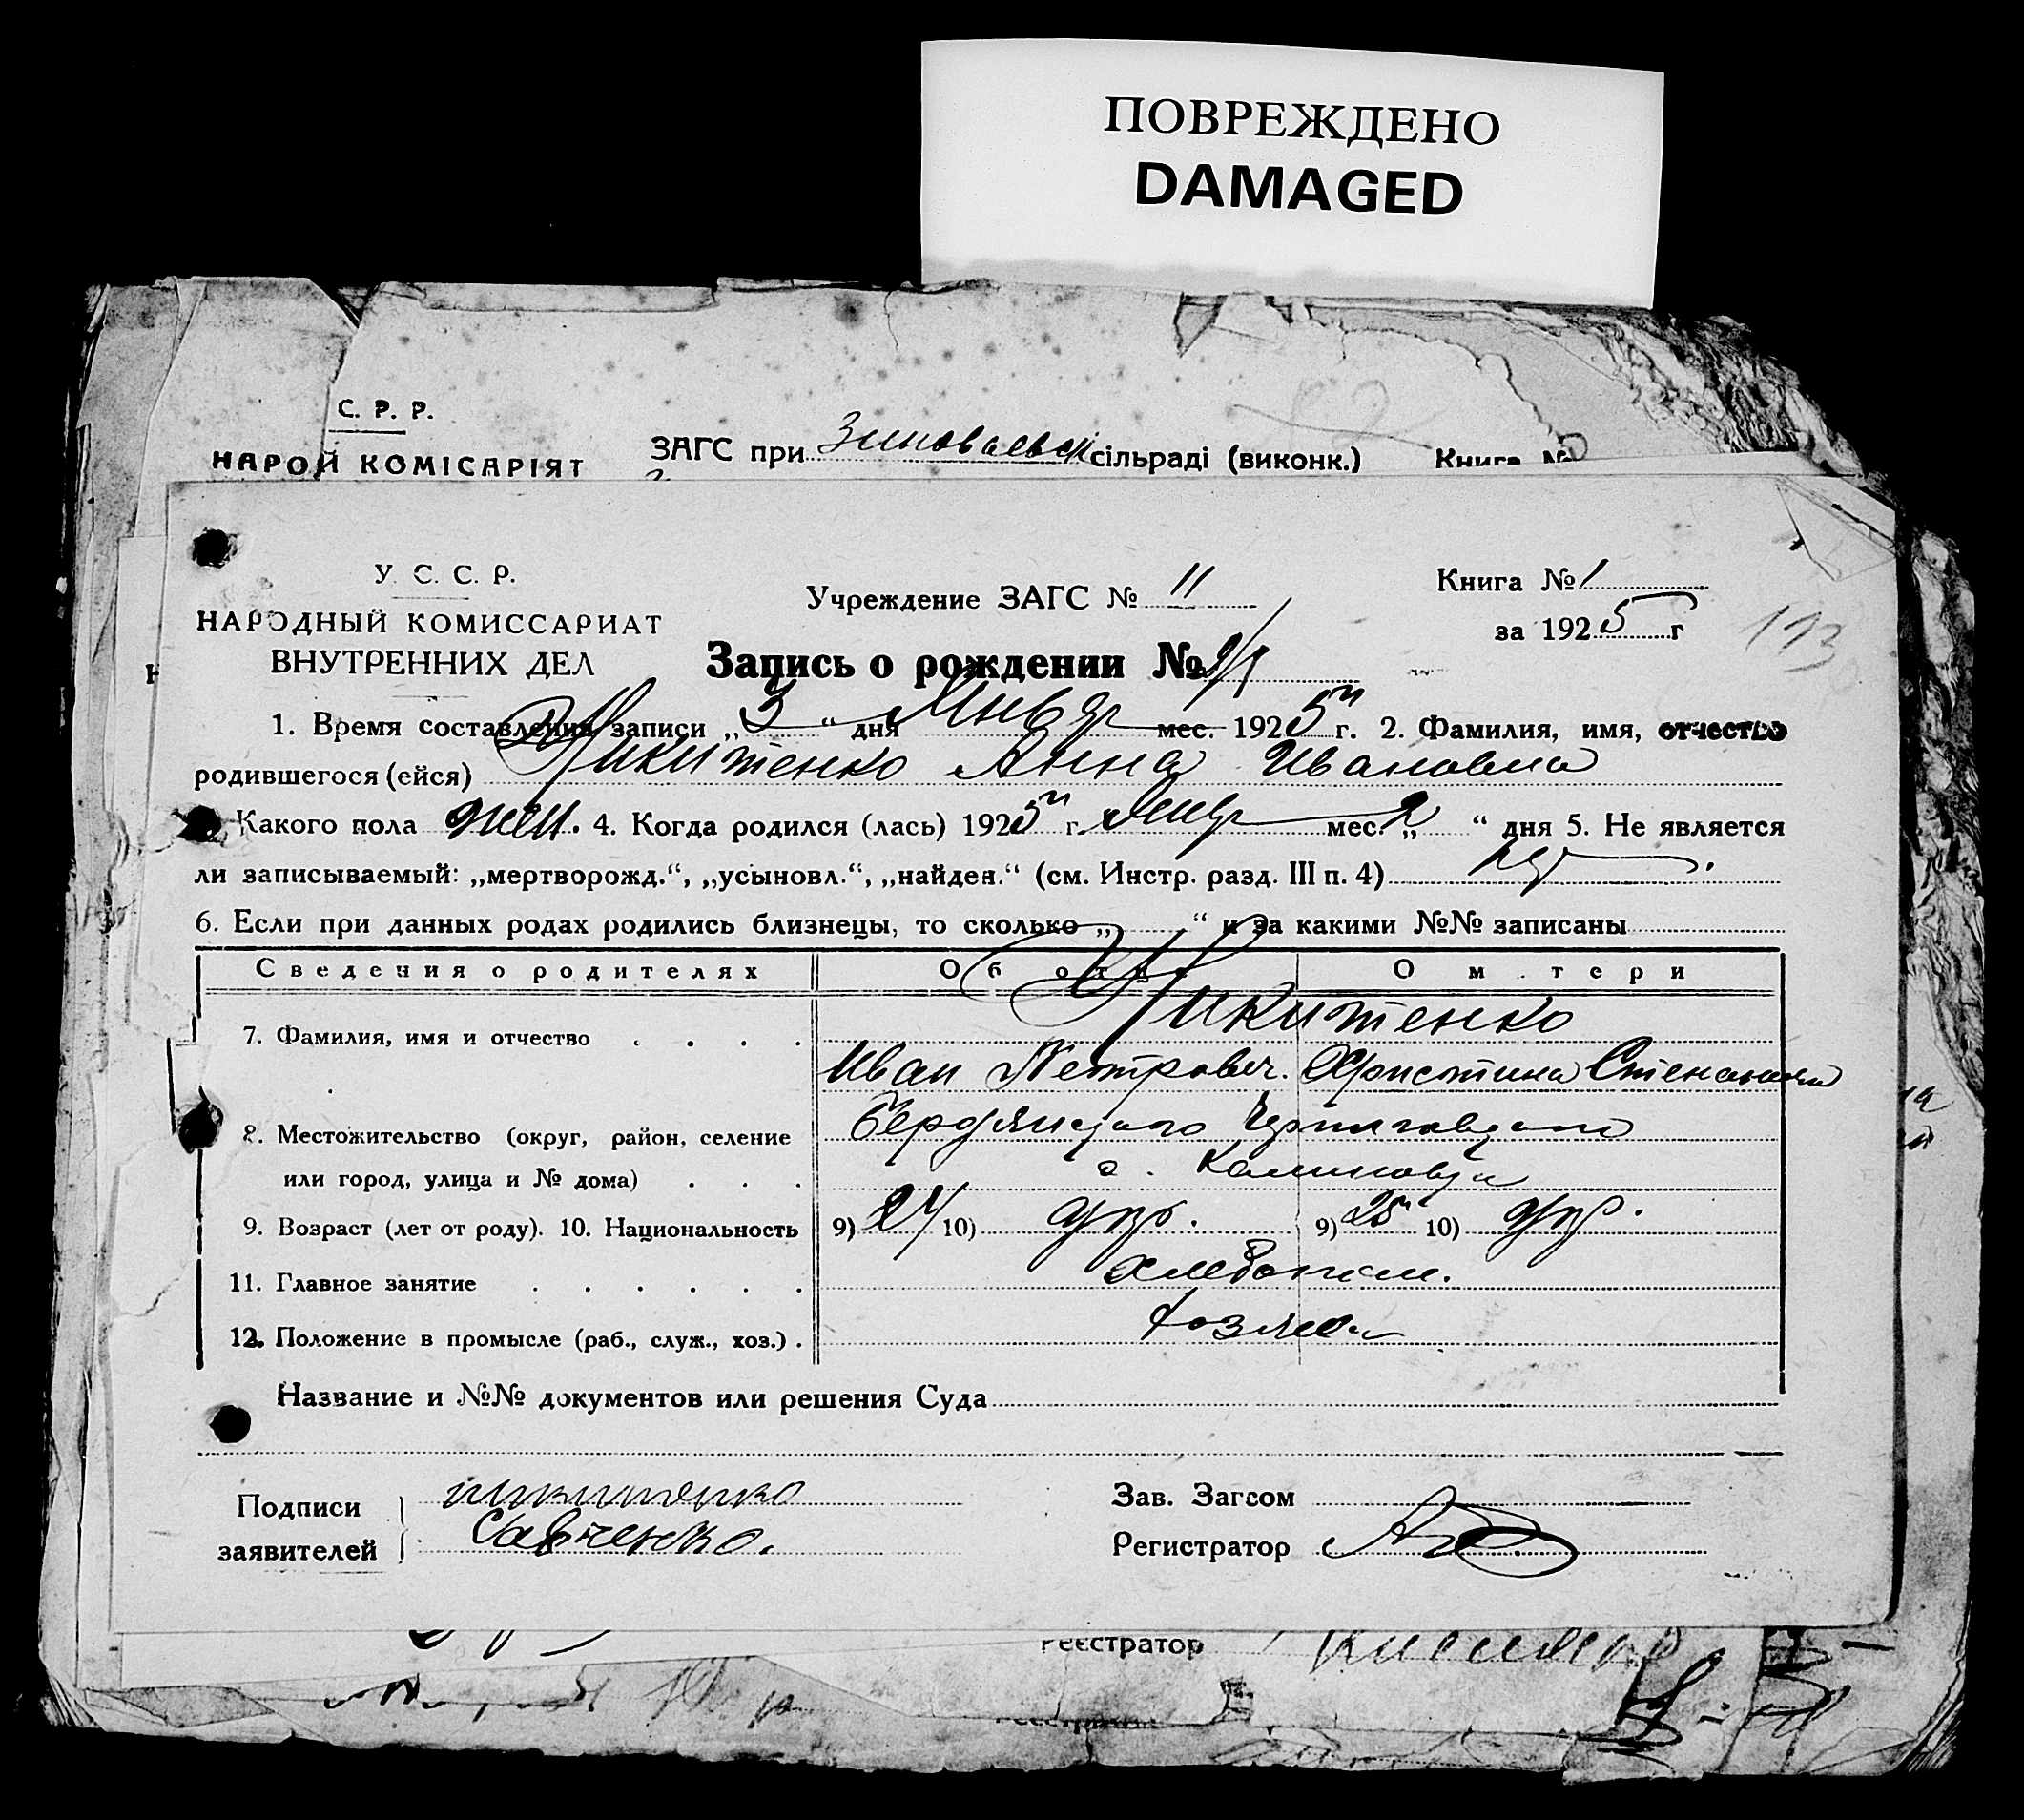 ПОВРЕЖДЕНО
DAMAGED
С. Р. Р.
НАРОЙ КОМІСАРІЯТ
ЗАГС при сільраді (виконк.) Книга №
У. С. С. Р.
НАРОДНЫЙ КОМИССАРИАТ
ВНУТРЕННИХ ДЕЛ
Учреждение ЗАГС № 11
Книга № 1
за 1925 г
113
Запись о рождении №
1. Время составления записи „ 3 “ дня Январ мес. 1925 г. 2. Фамилия, имя, отчество
родившегося (ейся) Никитенко Анна Ивановна
Какого пола жен. 4. Когда родился (лась) 1925 г. Янвр мес. „ 2 “ дня 5. Не является
ли записываемый: „мертворожд.“, „усыновл.“, „найден.“ (см. Инстр. разд. III п. 4)
6. Если при данных родах родились близнецы, то сколько „ “ и за какими №№ записаны
Сведения о родителях Об отце О матери
Никитенко
7. Фамилия, имя и отчество
Иван Петрович. Христина Степановна
8. Местожительство (округ, район, селение Бердянского Черниговского
или город, улица и № дома) с. Калиновка
9. Возраст (лет от роду). 10. Национальность 9) 24 10) укр. 9) 25 10) укр.
11. Главное занятие хлебопаш.
12. Положение в промысле (раб., служ., хоз.) хозяева
Название и №№ документов или решения Суда
Подписи Никитенко
заявителей Савченко.
Зав. Загсом
Регистратор
Реєстратор